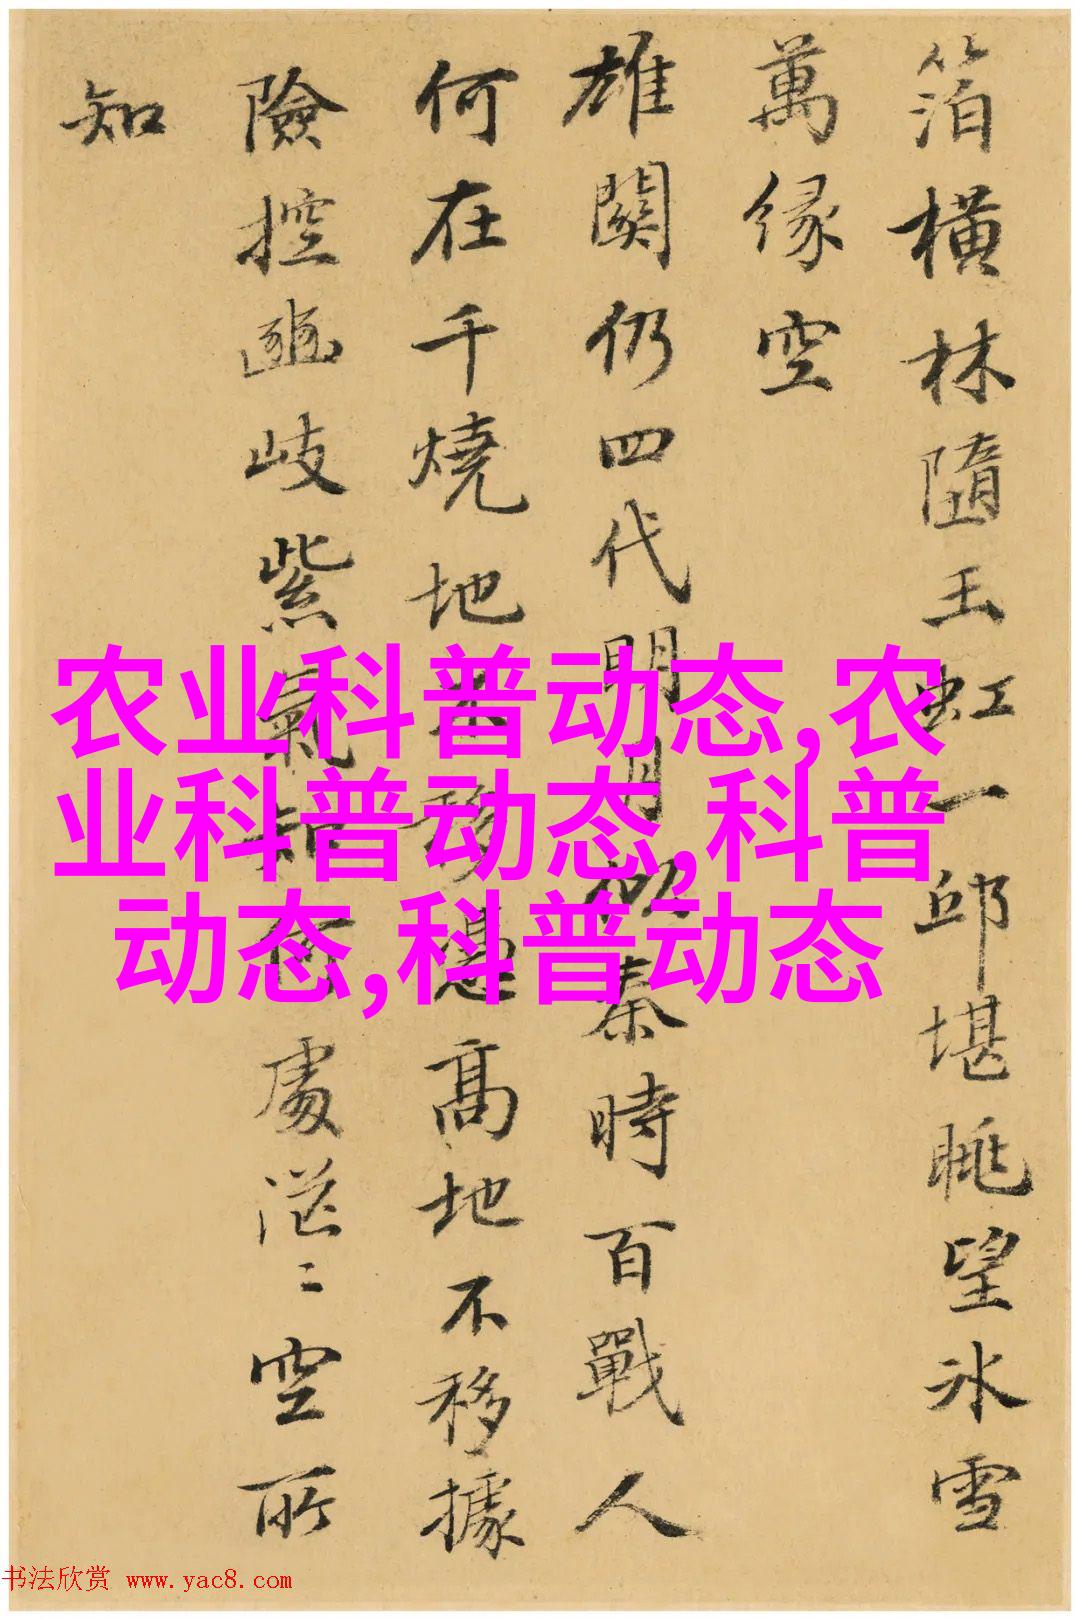 箔橫林隨玉虹一邱堪眺望冰雪
萬緣空
雄關仍四代明月似秦時百戰人
何在千燒地不移憑高地不移據
險控豳岐紫氣知何處茫〻空所
知
农业科普动态,农
业科普动态,科普
动态,科普动态
书法欣赏 www.yac8.com